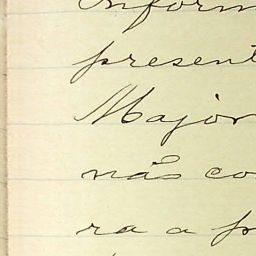 Inform
present
Major
não co
ra a p